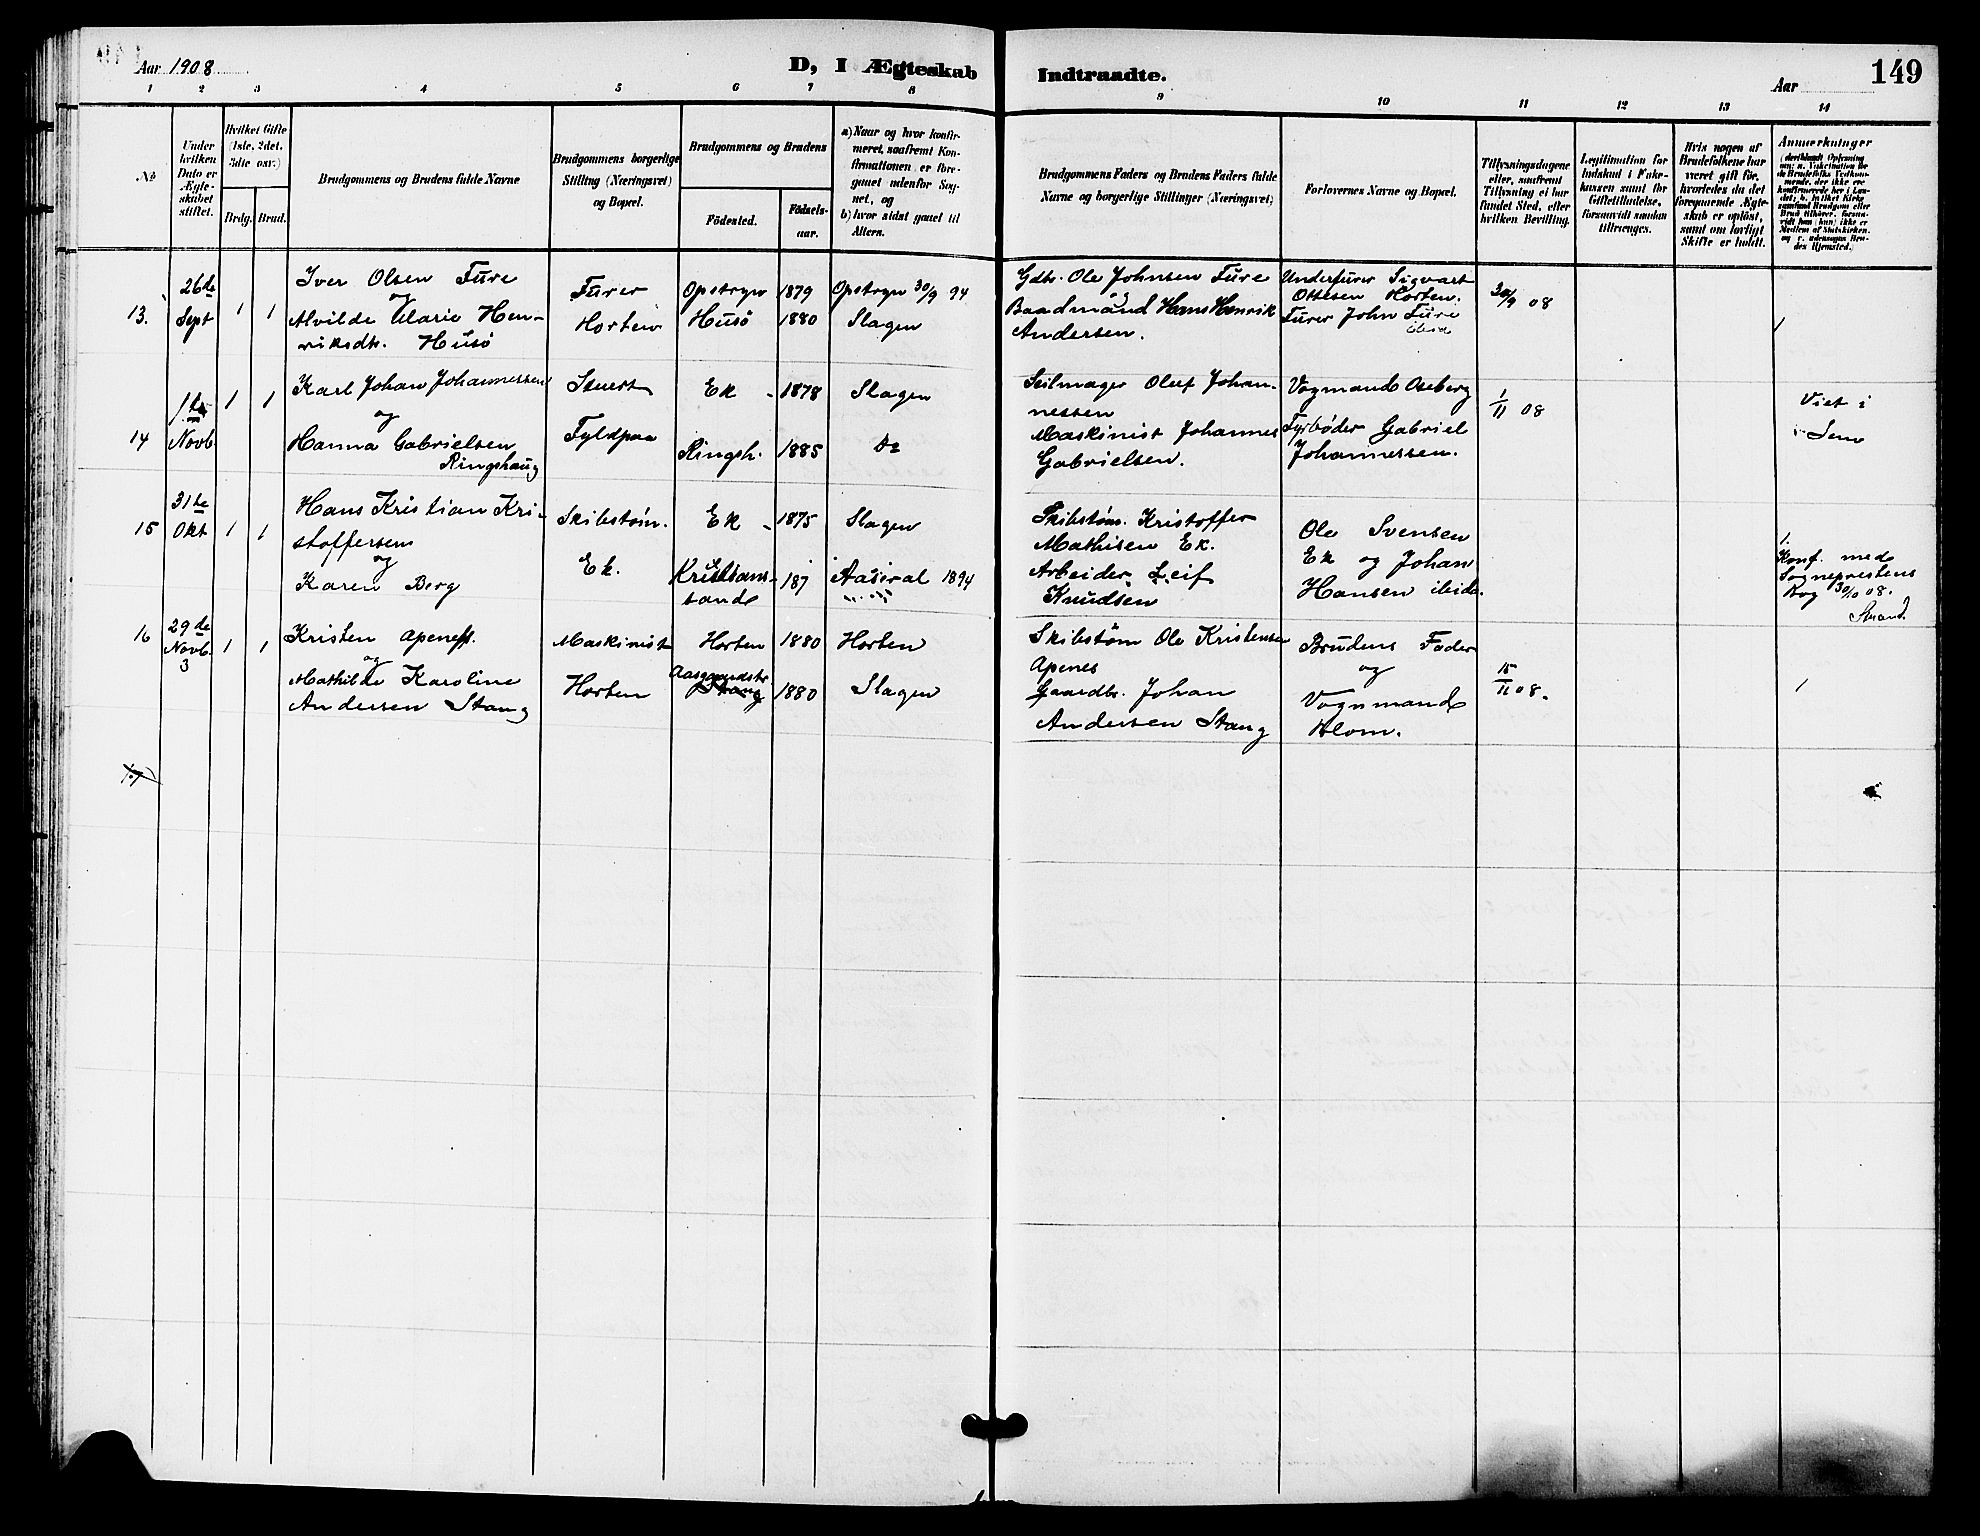 Aar 1908
D, I Ægteskab Indtraadte.
Aar
149
1 2 3 4 5 6 7 8 9 10 11 12 13 14
No
Under
hvilken
Dato er
Ægte-
skabet
stiftet.
Hvilket Gifte
(1ste, 2det,
3die osv.)
Brdg. Brud.
Brudgommens og Brudens fulde Navne
Brudgommens borgerlige
Stilling (Næringsvei)
og Bopæl.
Brudgommens og Brudens
Fødested.
Fødsels-
aar.
a) Naar og hvor konfir-
meret, saafremt Kon-
firmationen er fore-
gaaet udenfor Sog-
net, og
b) hvor sidst gaaet til
Alters.
Brudgommens Faders og Brudens Faders fulde
Navne og borgerlige Stillinger (Næringsvei)
Forlovernes Navne og Bopæl.
Tillysningsdagene
eller, saafremt
Tillysning ei har
fundet Sted, efter
hvilken Bevilling.
Legitimation for
Indskud i Enke-
kassen samt for
Giftetilladelse,
forsaavidt saadan
tiltrænges.
Hvis nogen af
Brudefolkene har
været gift før,
hvorledes da det
foregaaende Ægte-
skab er opløst,
samt om lovligt
Skifte er holdt.
Anmærkninger
13.
26de
Sept
1 1
Iver Olsen Füre
og
Alvilde Marie Hen-
riksdtr. Husö
Fürer
Horten
Opstryn 1879
Husö 1880
Opstryn 30/9 94
Slagen
Gdbr. Ole Johnsen Füre
og
Baadmand Hans Henrik
Andersen.
Underfürer Sigvart
Ottesen Horten.
Fürer John Füre
ibid
20/9 08
1
14
1te
Novb
1 1
Karl Johan Johannessen
og
Hanna Gabrielsen
Ringshaug
Stuert
Fyldpaa
Ek - 1878
Ringsh. 1885
Slagen
Do
Seilmager Oluf Johan-
nessen
Maskinist Johannes
Gabrielsen.
Vognmand Oseberg
Fyrbøder Gabriel
Johannessen.
1/11 08
Viet i
Sem
15
31te
Okt
1 1
Hans Kristian Kri-
stoffersen
og
Karen Berg
Skibstøm.
Ek.
Ek - 1875
Kristians-
sand 187
Slagen
Aaseral 1894
Skibstøm. Kristoffer
Mathisen Ek.
Arbeider Leif
Knudsen
Ole Svensen
Ek og Johan
Hansen ibid.
1.
Konf. med
Sogneprestens
Bog 30/10 08.
Strand
16
29de
Novb.
3
1 1
Kristen Apenes
og
Mathilde Karoline
Andersen Stang
Maskinist
Horten
Horten 1880
Aasgaardstr.
Stang 1880
Horten
Slagen
Skibstöm Ole Kristensen
Apenes
Gaardbr. Johan
Andersen Stang
Brudens Fader
og
Vognmand
Blom.
15/11 08.
1
17)